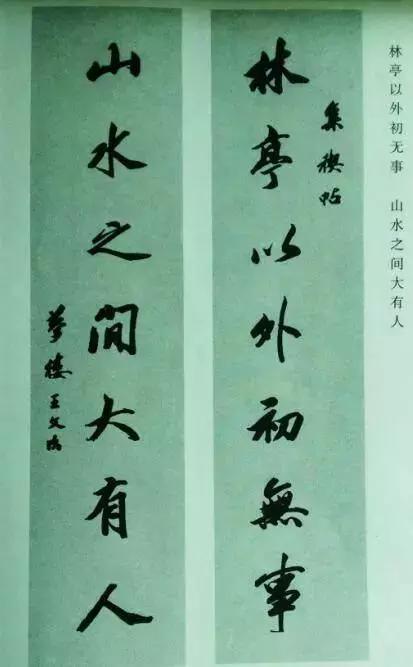 林亭以外初无事 山水之间大有人
集禊帖
林亭以外初無事
山水之間大有人
夢樓王文治